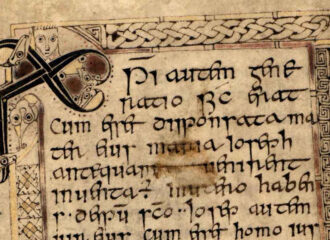 Xpi autem gene
ratio sic erat
Cum esset disponsata ma
ter eius maria ioseph
antequam uenirent
inuenta utero haben
s de spu sco ioseph autem
uir eius cum esset homo ius